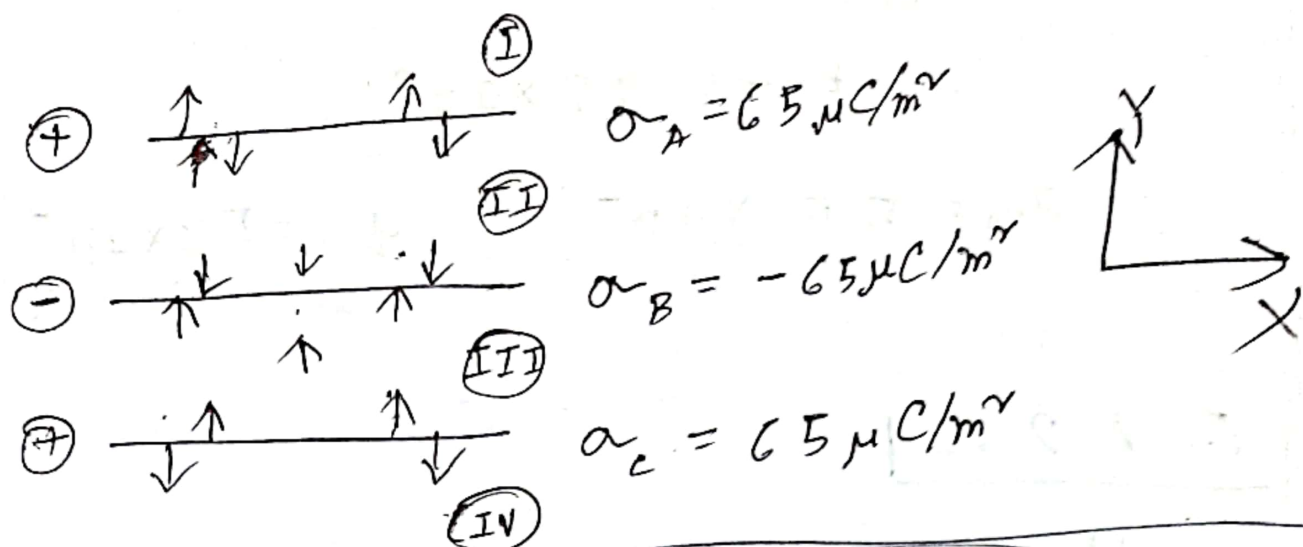 I
+
σ_A = 65 μC/m²
Y
II
-
σ_B = -65 μC/m²
X
III
+
σ_c = 65 μC/m²
IV